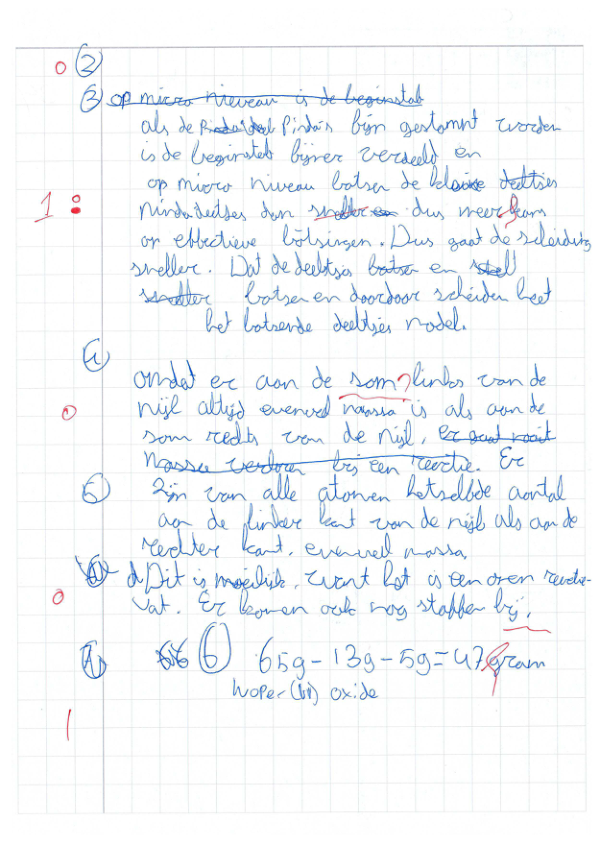 0 2
3 op micro niveau is de beginstab
als de Pinda's bijn gestampt worden
is de beginsteb bijver verdeeld en
op micro niveau botsen de kleine deeltjes
1 0 pindadeeltjes dan sneller en dus meer kans
op effectieve botsingen. Dus gaat de scheiding
sneller. Dat de deeltjes botsen en
sneller botsen en daardoor scheiden heet
het botsende deeltjes model.
4
omdat er aan de som? links van de
0 pijl altijd evenveel massa is als aan de
som rechts van de pijl. Er gaat nooit
massa verloren bij een reactie. Er
5 zijn van alle atomen hetselbde aantal
aan de linker kant van de pijl als aan de
rechter kant, evenveel massa.
d Dit is moeilijk, want het is een open reactie-
0 vat. Er komen ook nog stoffen bij.
6 65g - 13g - 5g = 47 gram
koper (II) oxide
1